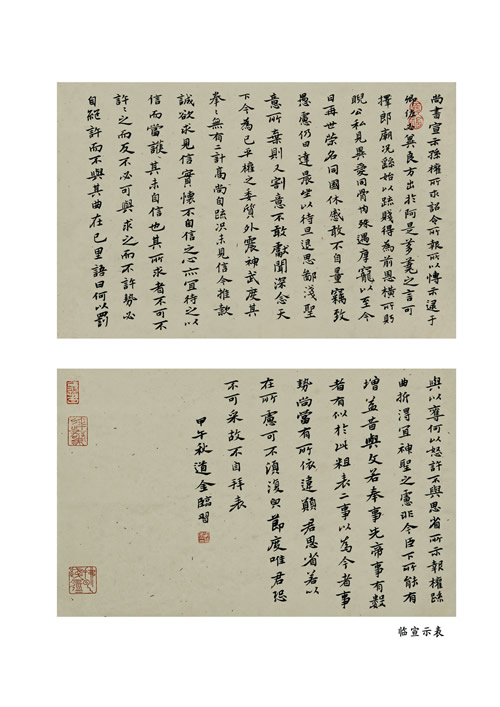 尚書宣示孫權所求詔令所報所以博示逮于
卿佐必冀良方出於阿是芻蕘之言可
擇郎廟况繇始以疏賤得為前恩橫所盱
睨公私見異愛同骨肉殊遇厚寵以至今
日再世榮名同國休慼敢不自量竊致
愚慮仍日達晨坐以待旦退思鄙淺聖
意所棄則又割意不敢獻聞深念天
下今為已平權之委質外震神武度其
拳々無有二計高尚自疏况未見信今推款
誠欲求見信實懷不自信之心亦宜待之以
信而當護其未自信也其所求者不可不
許々之而反不必可與求之而不許勢必
自絕許而不與其曲在己里語曰何以罰
與以奪何以怒許不與思省所示報權疏
曲折得宜神聖之慮非今臣下所能有
增益昔與文若奉事先帝事有數
者有似於此粗表二事以為今者事
勢尚當有所依違願君思省若以
在所慮可不須復皃節度唯君恐
不可采故不自拜表
甲午秋道金臨習
临宣示表